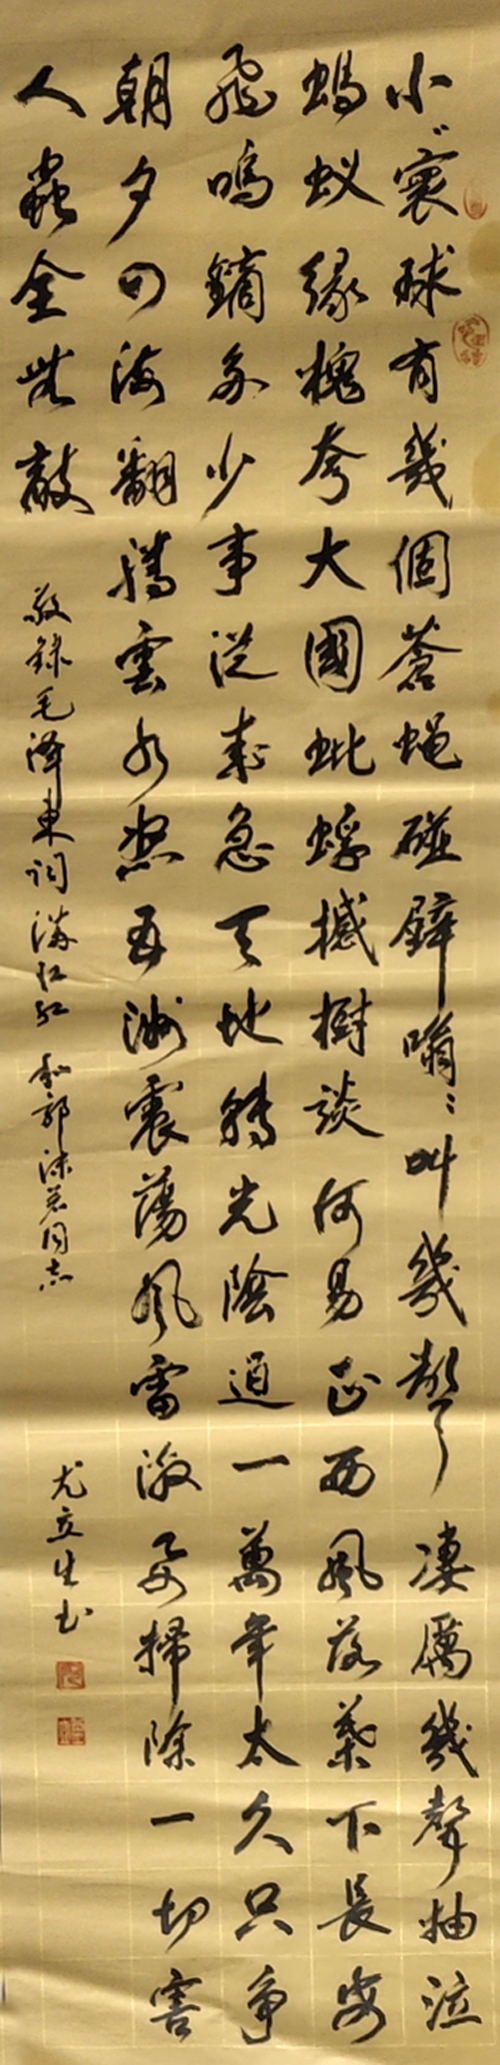 小〻寰球有幾個蒼蠅碰壁嗡〻叫幾聲凄厲幾聲抽泣
螞蚁緣槐夸大國蚍蜉撼樹談何易正西風落葉下長安
飛鳴鏑多少事從來急天地轉光陰迫一萬年太久只爭
朝夕四海翻騰雲水怒五洲震蕩風雷激要掃除一切害
人蟲全無敵
敬錄毛澤東詞滿江紅和郭沫若同志
尤立生书